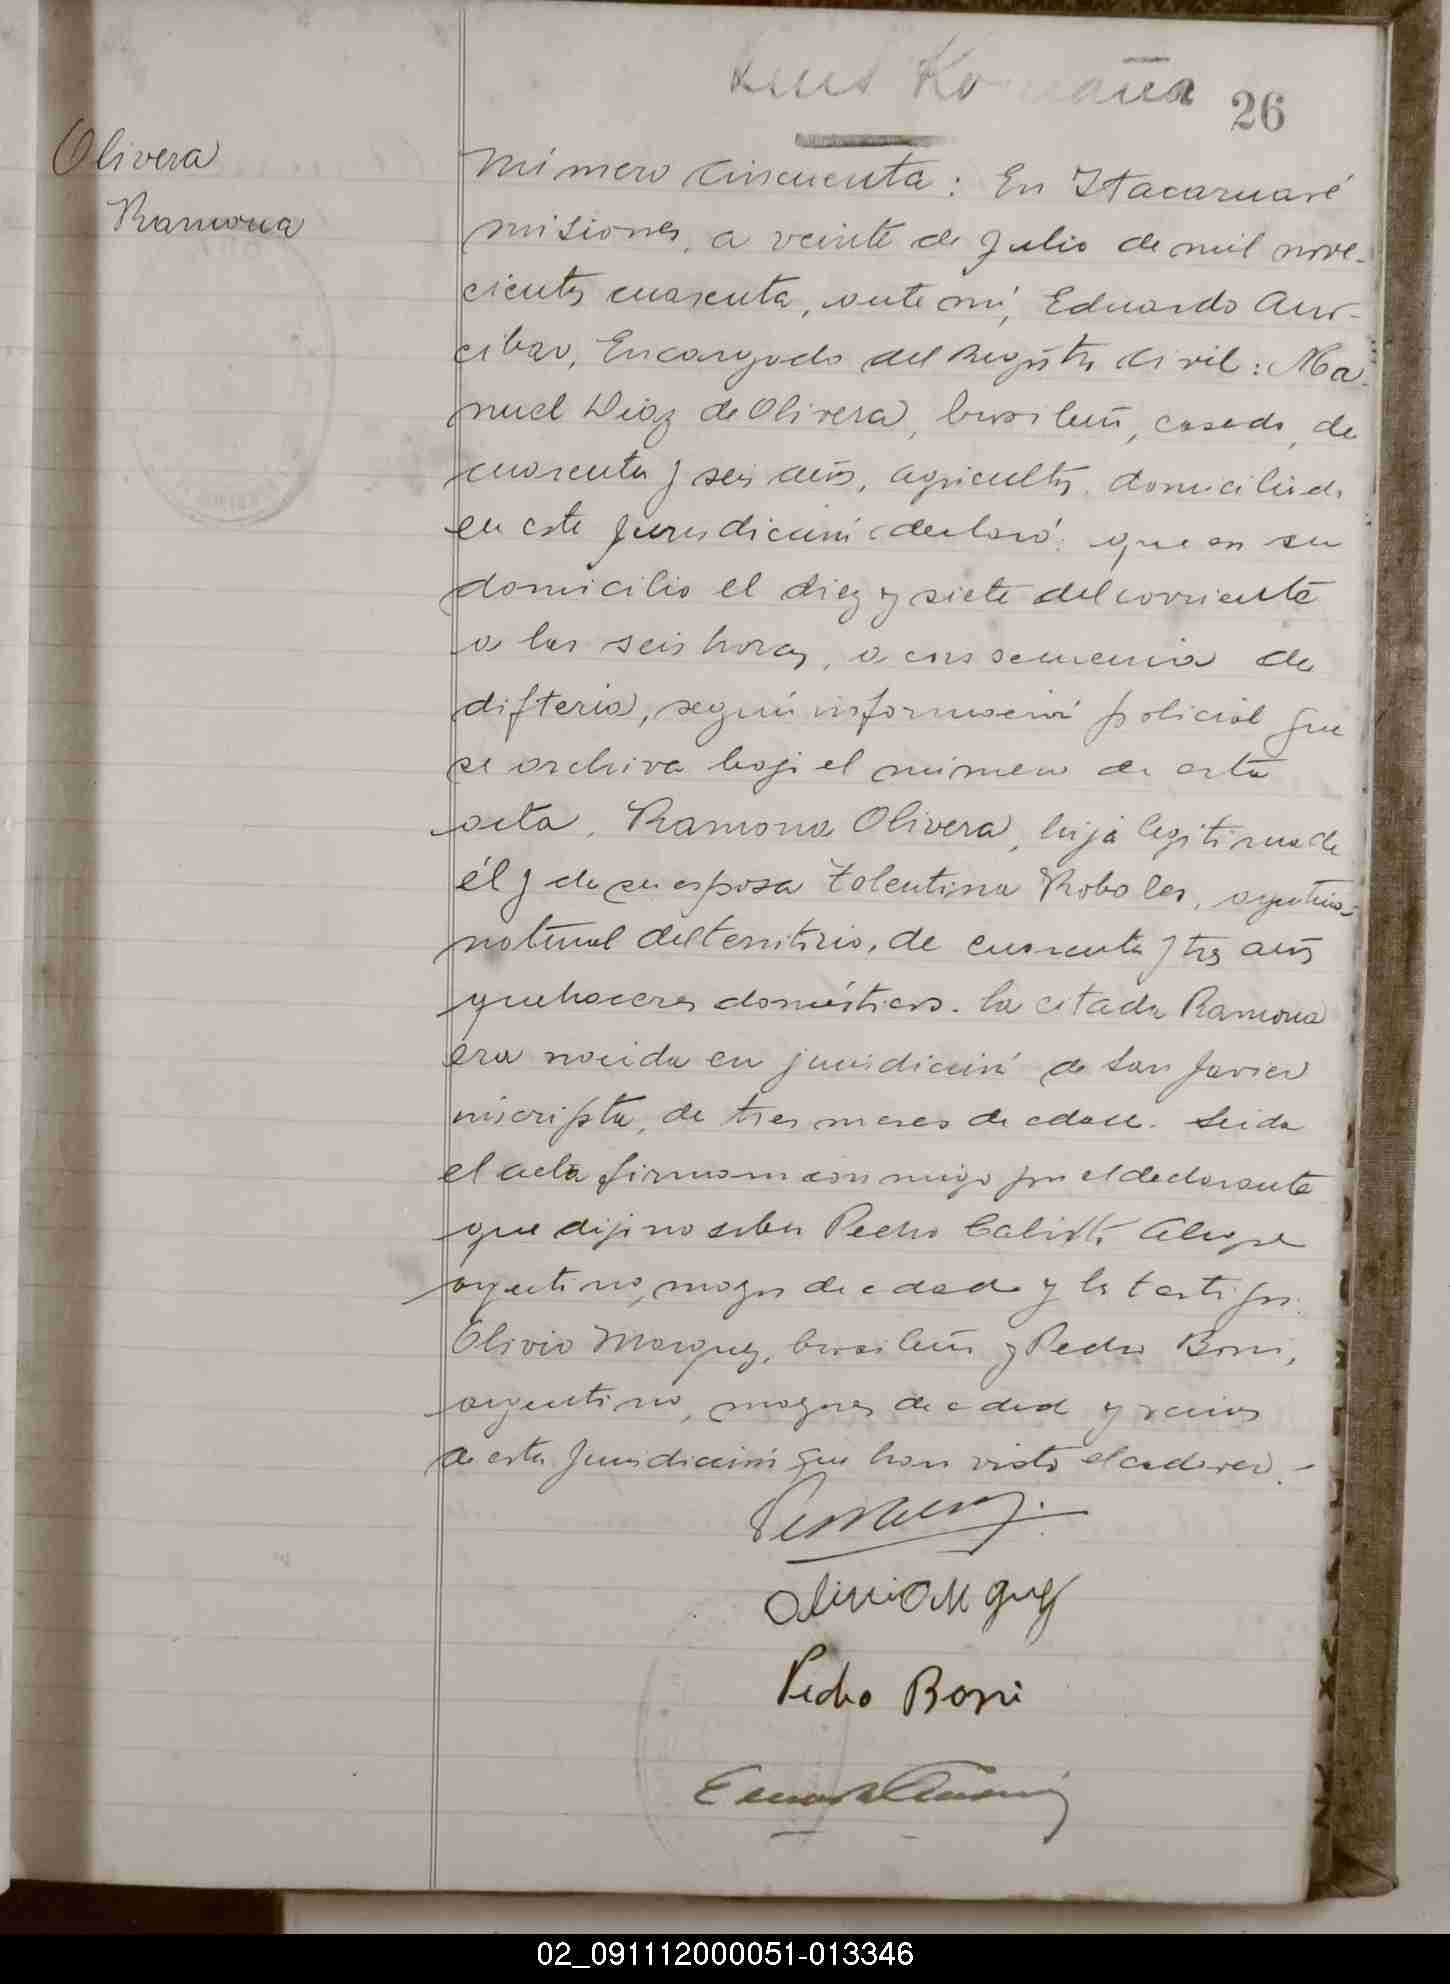 26
Olivera
Ramona
Número cincuenta: En Itacaruaré
misiones, a veinte de Julio de mil nove-
cientos cuarenta, ante mí, Eduardo
cibar, Encargado del Registro Civil: Ma-
nuel Diaz de Olivera, brasileño, casado, de
cuarenta y seis años, agricultor, domiciliado
en esta jurisdicción declaró: que en su
domicilio el diez y siete del corriente
a las seis horas, a consecuencia de
difteria, según información policial que
se archiva bajo el número de esta
acta, Ramona Olivera, hija legitima de
él y de su esposa Tolentina Robales, argentina
natural del territorio, de cuarenta y tres años
quehaceres domésticos. La citada Ramona
era nacida en jurisdicción de San Javier
inscripta, de tres meses de edad. Leida
el acta firman conmigo por el declarante
que dijo no saber Pedro Calisto Alegre
argentino, mayor de edad y los testigos:
Olivio Marquez, brasileño y Pedro Borri,
argentino, mayores de edad y vecinos
de esta jurisdicción que han visto el cadaver.-
Pedro Borri
02_091112000051-013346